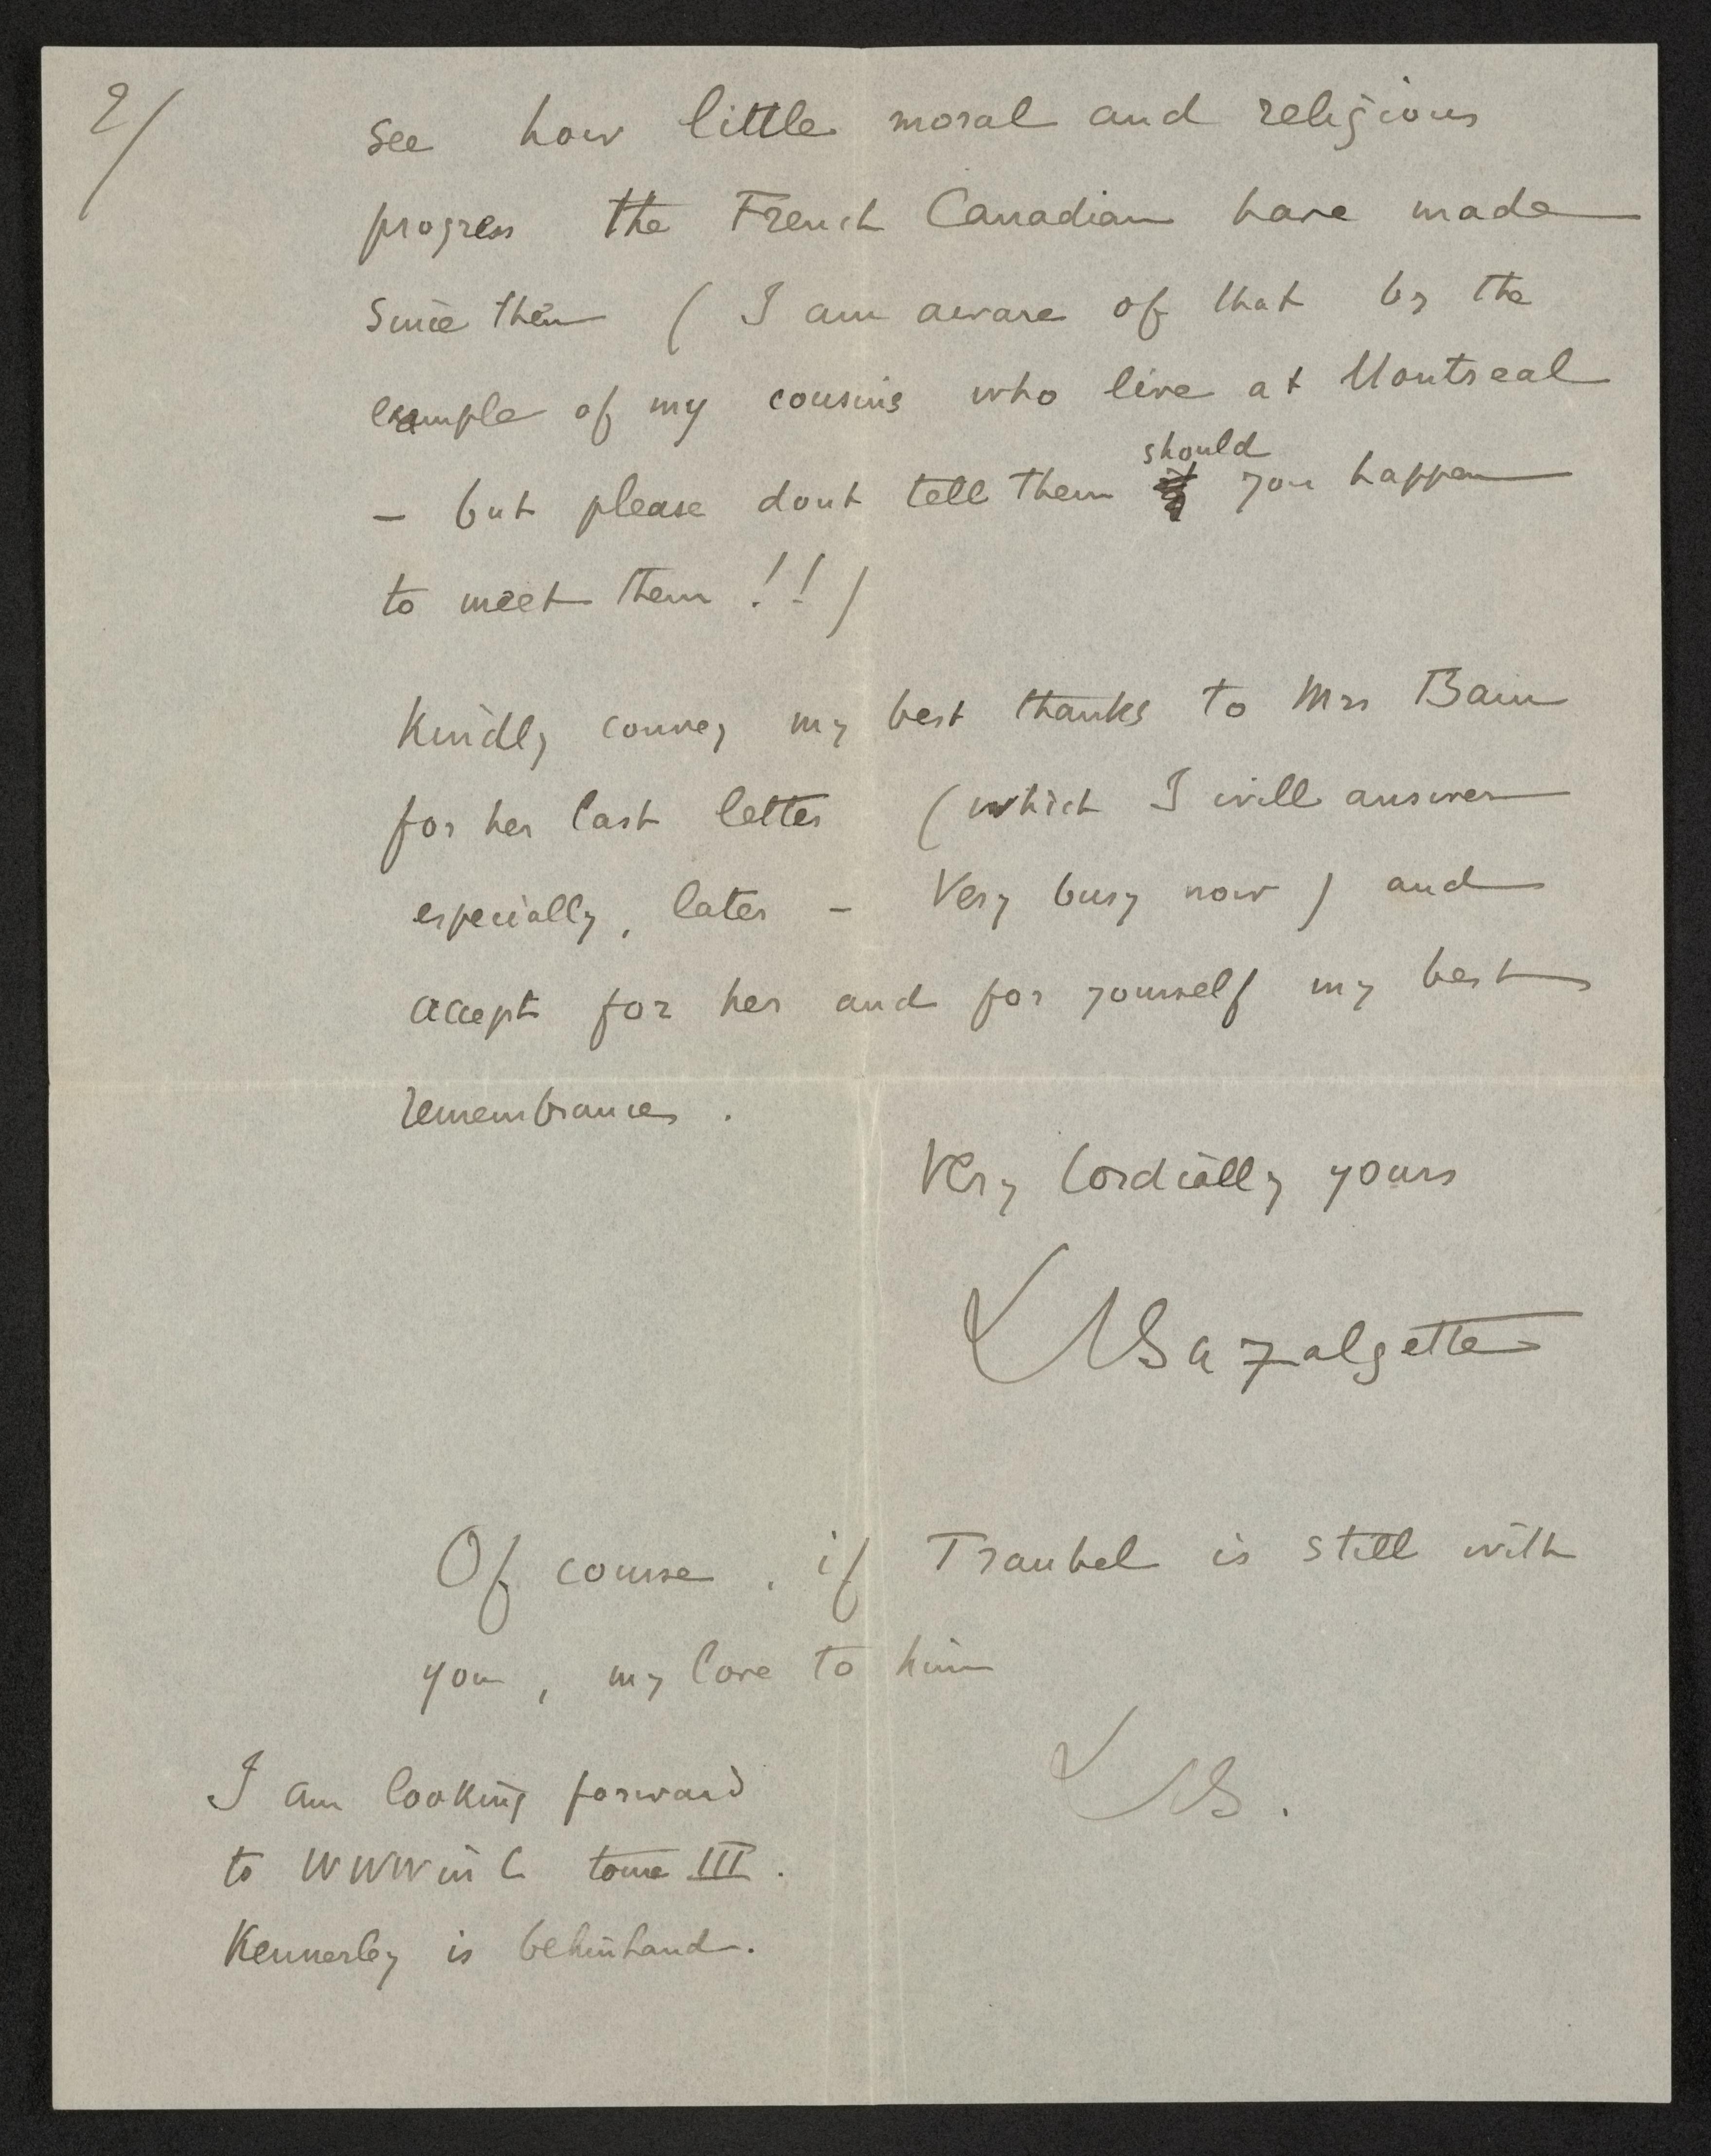 2/
see how little moral and religious
progress the French Canadian have made
since then ( I am aware of that by the
example of my cousins who live at Montreal
should
- but please dont tell them you happen
to meet them !! )
Kindly convey my best thanks to Mrs Bain
for her last letter ( which I will answer
especially, later - Very busy now ) and
accept for her and for yourself my best
remembrances .
Very cordially yours
LBazalgette
Of course , if Traubel is still with
you , my love to him
LB .
I am looking forward
to WWW in C tome III .
Kennerley is behinhand .